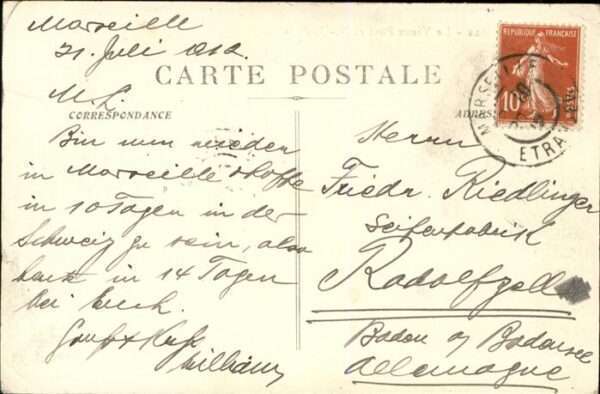 Marseille
21. Juli 1912.
CARTE POSTALE
M. L.
CORRESPONDANCE
Bin nun wieder
in Marseille & hoffe
in 10 Tagen in der
Schweiz zu sein, also
in 14 Tagen
bei Euch.
Gruß & Kuß
William
ADRESSE
Herrn
Friedr. Riedlinger
Seifenfabrik
Radolfzell
Baden a/ Bodensee
Allemagne
REPUBLIQUE FRANÇAISE
10
POSTES
MARSEILLE
ETRANGER